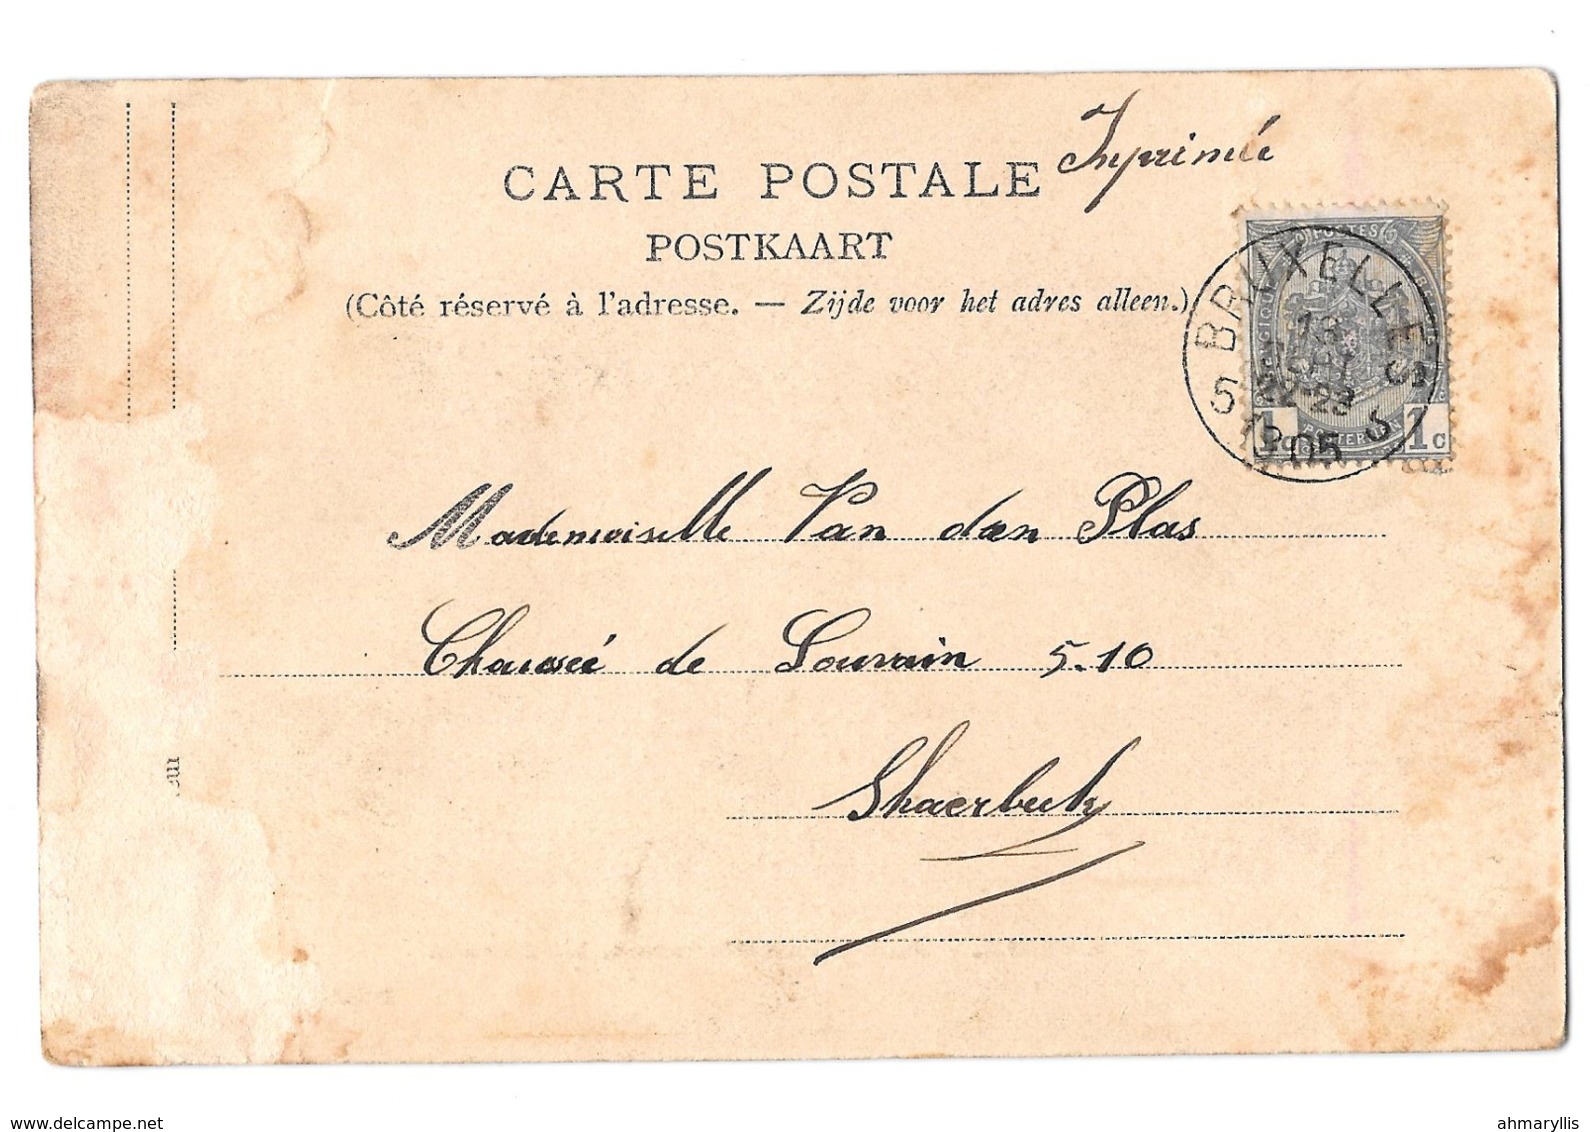 Imprimée
CARTE POSTALE
POSTKAART
(Côté réservé à l'adresse. — Zijde voor het adres alleen.)
POSTES
BRUXELLES
5 5
13
22-23
1905
1c 1c
POSTERIJEN
Mademoiselle Van den Plas
Chaussée de Louvain 510
Shaerbeek
www.delcampe.net
ahmaryllis